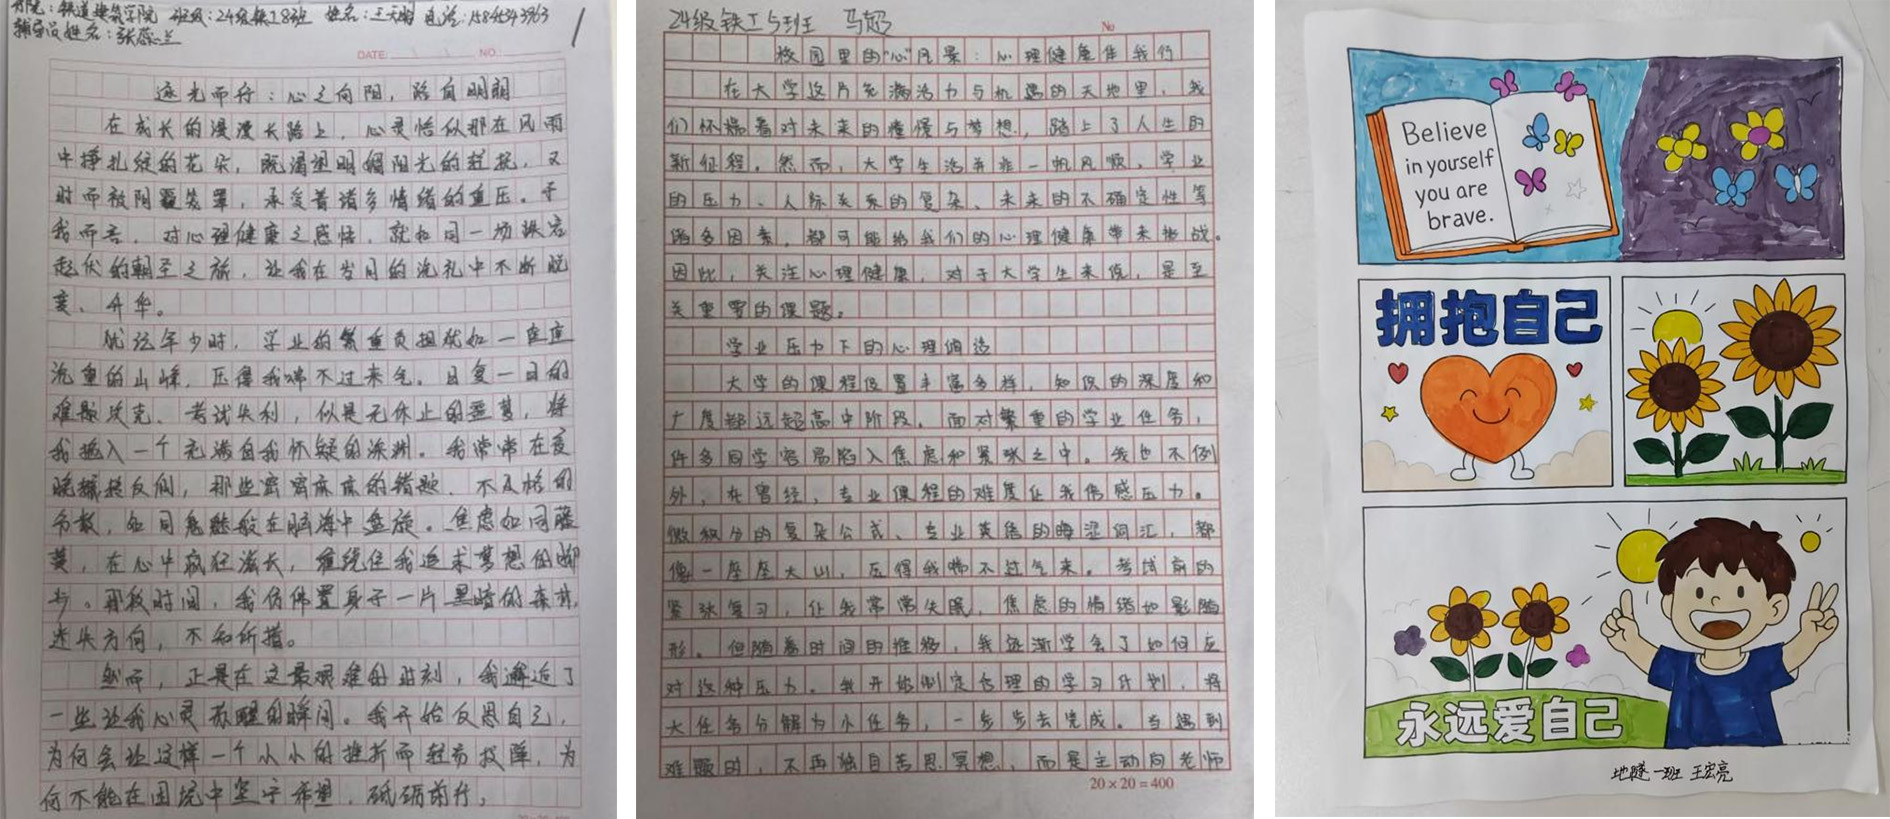 院：铁道建筑学院 班级：24级铁工8班 姓名：王天 电话：15845343963
辅导员姓名：张蕊兰
1
DATE
NO
逐光而行：心之向阳，路自明朗
在成长的漫漫长路上，心灵恰似那在风雨
中挣扎绽的花朵，既渴望明媚阳光的轻抚，又
时而被阴霾笼罩，承受着诸多情绪的重压。于
我而言，对心理健康之感悟，就如同一场跌宕
起伏的朝圣之旅，让我在岁月的洗礼中不断蜕
变、升华。
犹记年少时，学业的繁重负担犹如一座座
沉重的山峰，压得我喘不过来气。日复一日的
难题攻克、考试失利，似是无休止的噩梦，将
我拖入一个充满自我怀疑的深渊。我常常在夜
晚辗转反侧，那些密密麻麻的错题、不及格的
分数，如同鬼魅般在脑海中盘旋。焦虑如同藤
蔓，在心中疯狂滋长，缠绕住我追求梦想的脚
步。那段时间，我仿佛置身于一片黑暗的森林，
迷失方向，不知所措。
然而，正是在这最艰难的时刻，我邂逅了
一些让我心灵苏醒的瞬间。我开始反思自己，
为何会让这样一个小小的挫折而轻易投降，为
何不能在困境中坚守希望，砥砺前行，
24级铁工5班 马超
No
校园里的“心”风景：心理健康伴我行
在大学这片充满活力与机遇的天地里，我
们怀揣着对未来的憧憬与梦想，踏上了人生的
新征程。然而，大学生活并非一帆风顺，学业
的压力、人际关系的复杂、未来的不确定性等
诸多因素，都可能给我们的心理健康带来挑战。
因此，关注心理健康，对于大学生来说，是至
关重要的课题。
学业压力下的心理调适
大学的课程设置丰富多样，知识的深度和
广度都远超高中阶段。面对繁重的学业任务，
许多同学容易陷入焦虑和紧张之中。我也不例
外，在曾经，专业课程的难度让我倍感压力。
微积分的复杂公式、专业英语的晦涩词汇，都
像一座座大山，压得我喘不过气来。考试前的
紧张复习，让我常常失眠，焦虑的情绪如影随
形。但随着时间的推移，我逐渐学会了如何应
对这种压力。我开始制定合理的学习计划，将
大任务分解为小任务，一步步去完成。当遇到
难题时，不再独自苦思冥想，而是主动向老师
20×20=400
Believe
in yourself
you are
brave.
拥抱自己
永远爱自己
地隧一班 王宏亮